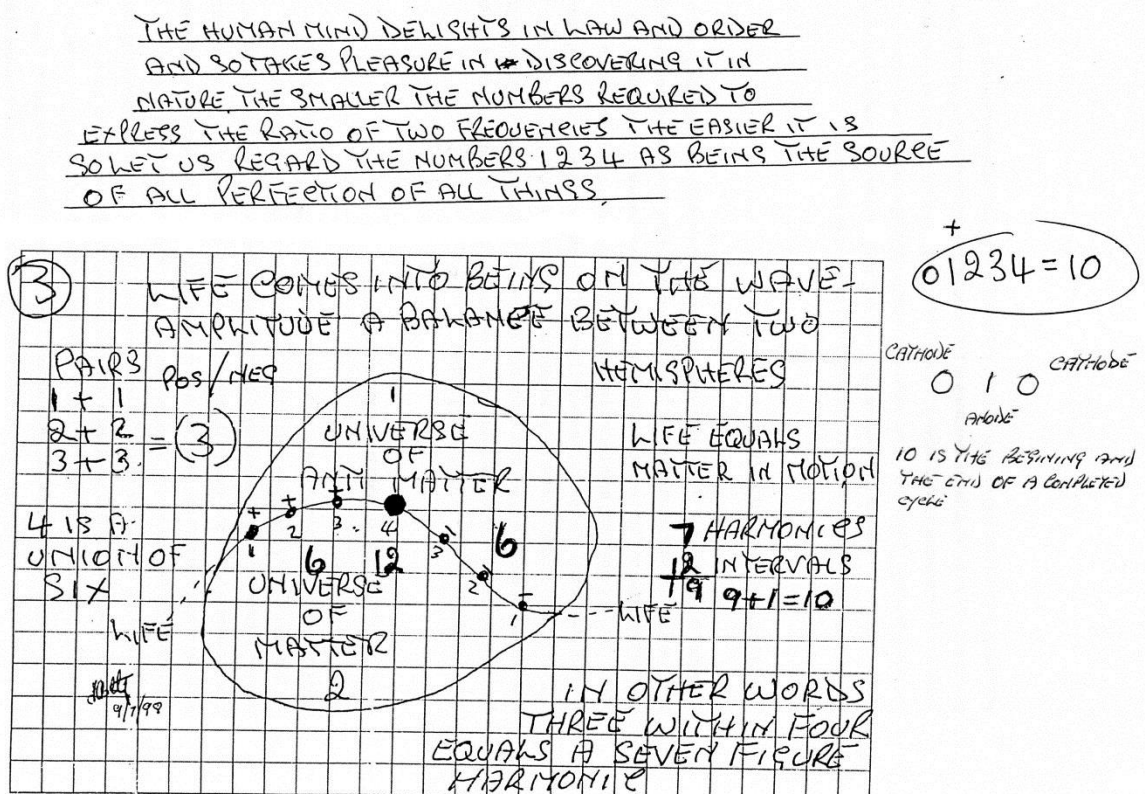 THE HUMAN MIND DELIGHTS IN LAW AND ORDER
AND SO TAKES PLEASURE IN DISCOVERING IT IN
NATURE. THE SMALLER THE NUMBERS REQUIRED TO
EXPRESS THE RATIO OF TWO FREQUENCIES THE EASIER IT IS
SO LET US REGARD THE NUMBERS 1234 AS BEING THE SOURCE
OF ALL PERFECTION OF ALL THINGS.
+
01234=10
CATHODE
CATHODE
0 1 0
ANODE
10 IS THE BEGINING AND
THE END OF A COMPLETED
CYCLE
3
LIFE COMES INTO BEING ON THE WAVE-
AMPLITUDE A BALANCE BETWEEN TWO
HEMISPHERES
PAIRS POS/NEG
1 + 1
2 + 2
3 + 3.
= (3)
4 IS A
UNION OF
SIX
1
UNIVERSE
OF
ANTI MATTER
+ + +
1 2 3. 4 3 2 1
- - -
6 12 6
UNIVERSE
OF
MATTER
2
LIFE
LIFE
LIFE EQUALS
MATTER IN MOTION
7 HARMONICS
12 INTERVALS
19 9+1=10
IN OTHER WORDS
THREE WITHIN FOUR
EQUALS A SEVEN FIGURE
HARMONIC